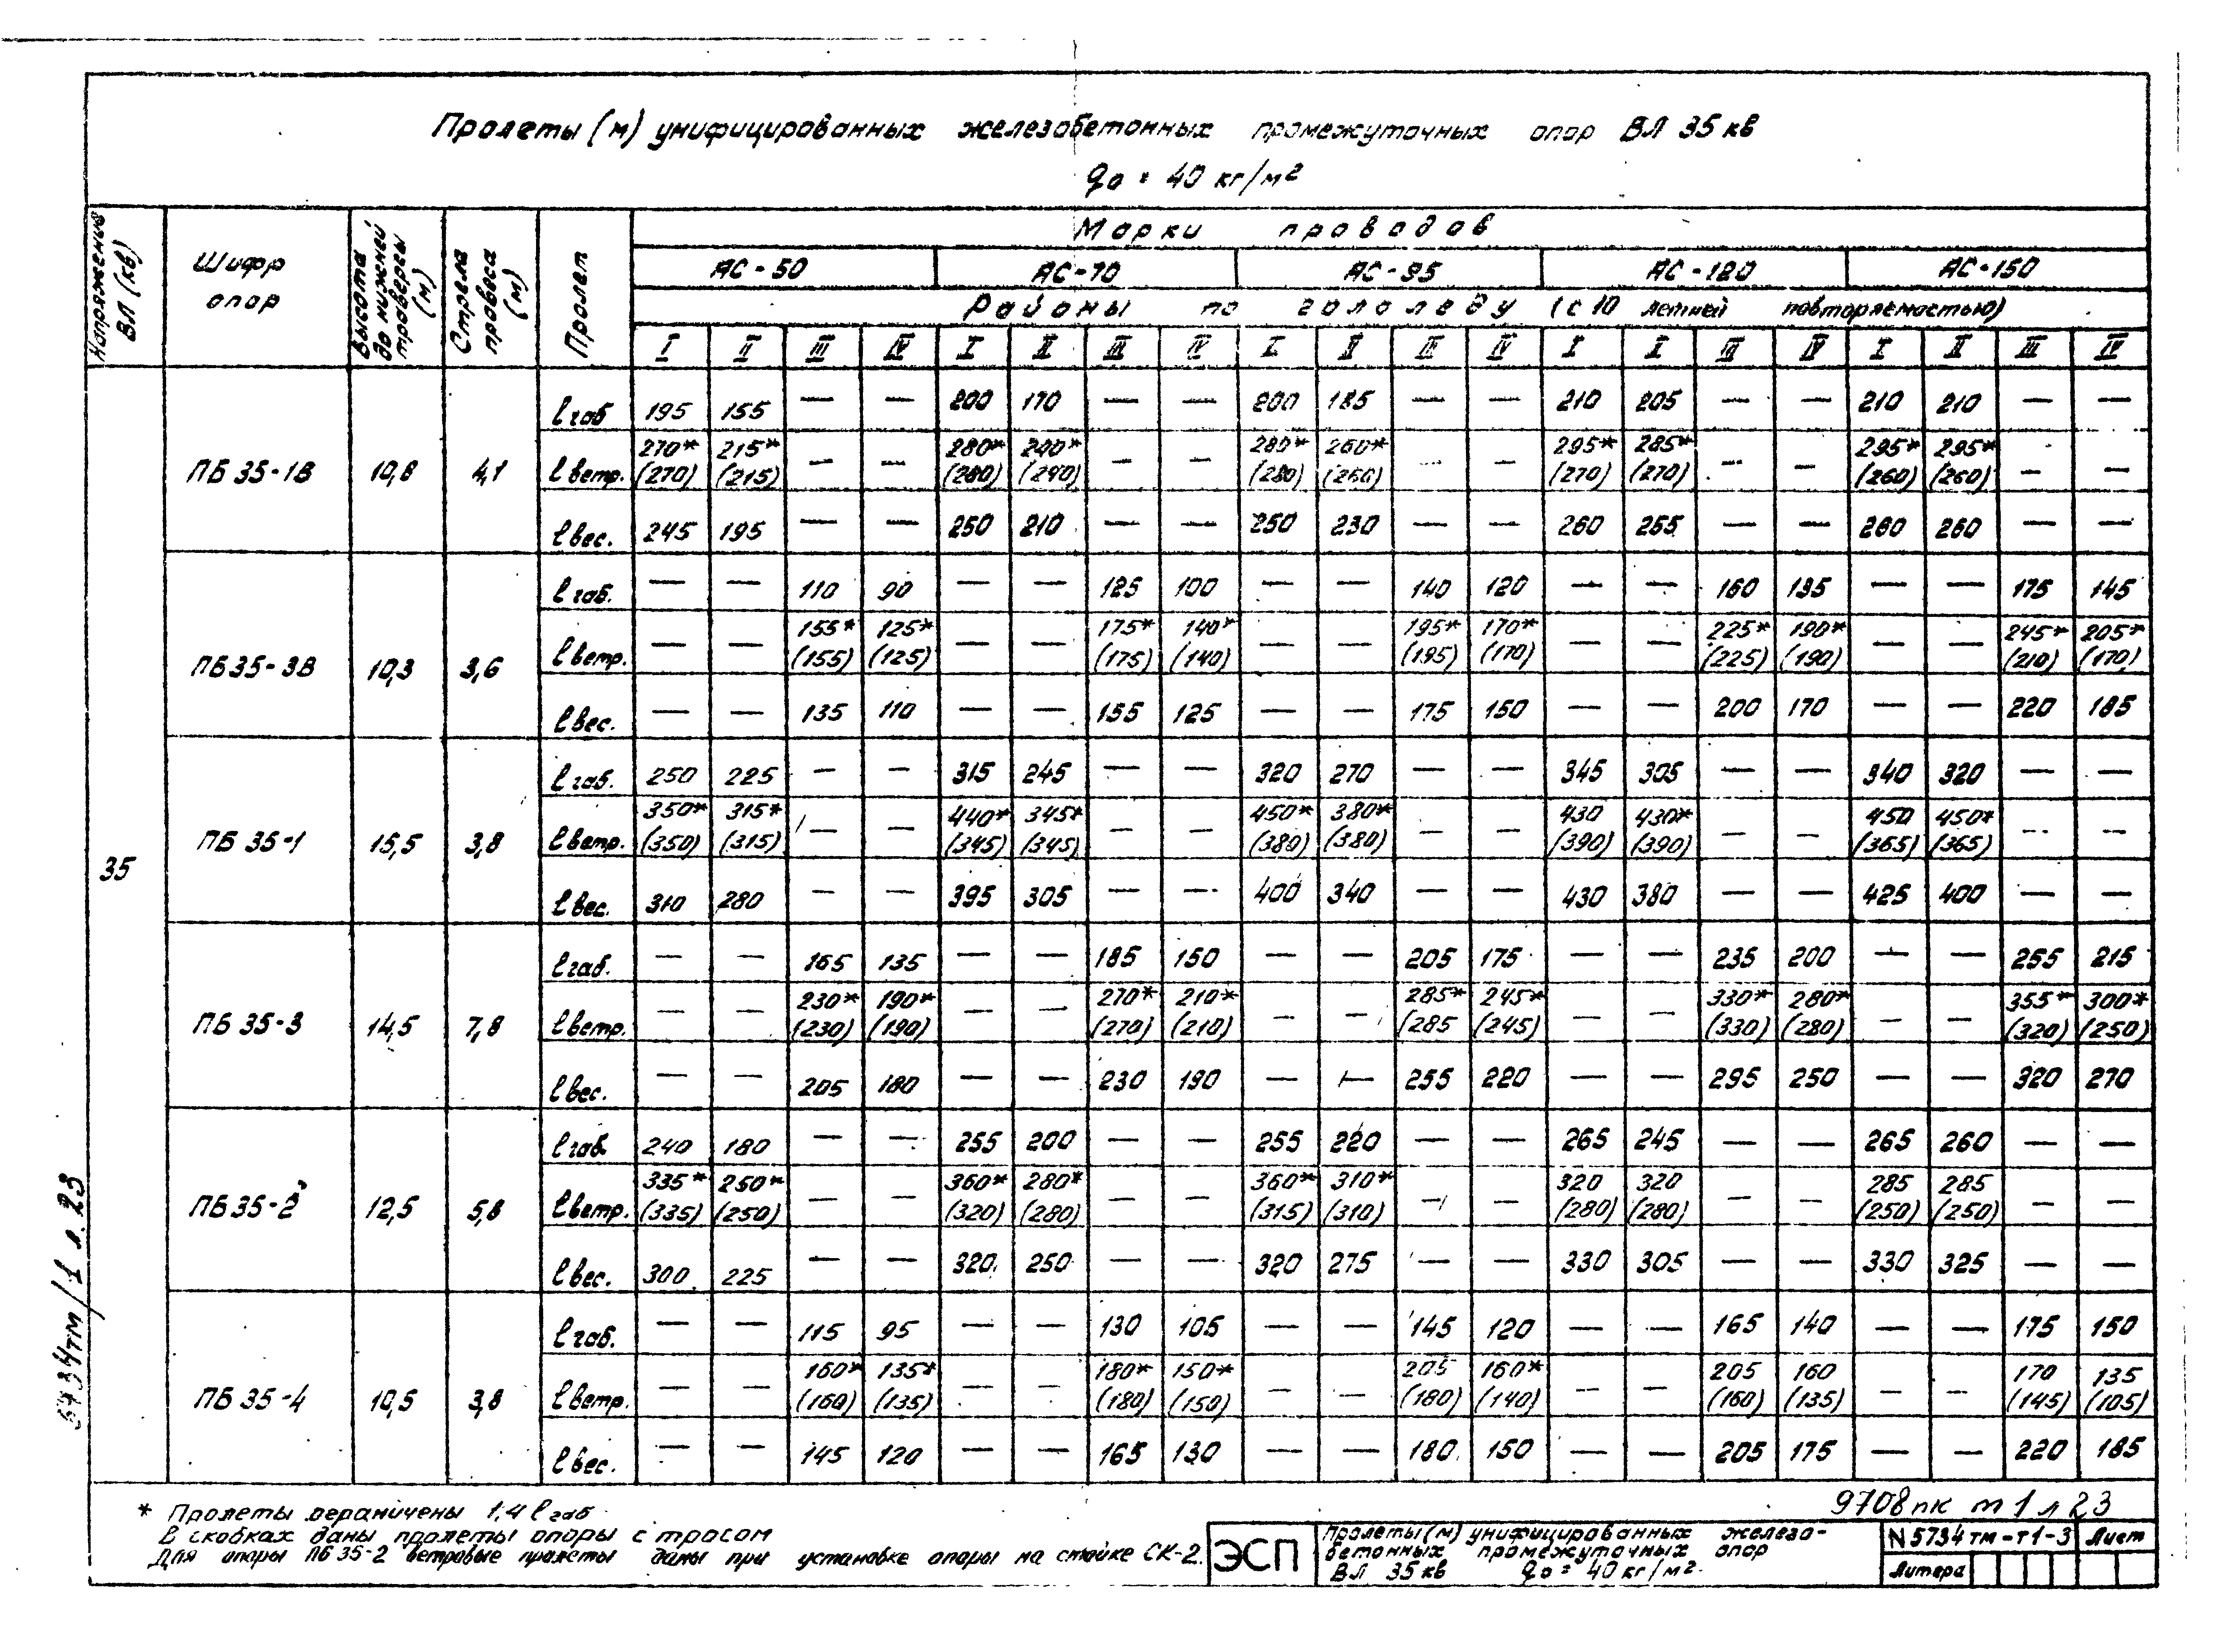 Пролеты (м) унифицированных железобетонных промежуточных опор ВЛ 35 кв
q₀ = 40 кг/м²
Напряжение ВЛ (кв)
Шифр опор
Высота до нижней траверсы (м)
Стрела провеса (м)
Пролет
Марки проводов
АС-50 АС-70 АС-95 АС-120 АС-150
Районы по гололеду (с 10 летней повторяемостью)
I II III IV I II III IV I II III IV I I III IV I II III IV
35
ПБ 35-1В 10,8 4,1
l габ 195 155 — — 200 170 — — 200 185 — — 210 205 — — 210 210 — —
l ветр. 270* (270) 215* (215) — — 280* (280) 240* (240) — — 280* (280) 260* (260) — — 295* (270) 285* (270) — — 295* (260) 295* (260) — —
l вес. 245 195 — — 250 210 — — 250 230 — — 260 255 — — 260 260 — —
ПБ 35-3В 10,3 3,6
l габ. — — 110 90 — — 125 100 — — 140 120 — — 160 135 — — 175 145
l ветр. — — 155* (155) 125* (125) — — 175* (175) 140* (140) — — 195* (195) 170* (170) — — 225* (225) 190* (190) — — 245* (210) 205* (170)
l вес. — — 135 110 — — 155 125 — — 175 150 — — 200 170 — — 220 185
ПБ 35-1 15,5 3,8
l габ. 250 225 — — 315 245 — — 320 270 — — 345 305 — — 340 320 — —
l ветр. 350* (350) 315* (315) — — 440* (345) 345* (345) — — 450* (380) 380* (380) — — 430 (390) 430* (390) — — 450 (365) 450* (365) — —
l вес. 310 280 — — 395 305 — — 400 340 — — 430 380 — — 425 400 — —
ПБ 35-3 14,5 7,8
l габ. — — 165 135 — — 185 150 — — 205 175 — — 235 200 — — 255 215
l ветр. — — 230* (230) 190* (190) — — 270* (270) 210* (210) — — 285* (285 245* (245) — — 330* (330) 280* (280) — — 355* (320) 300* (250)
l вес. — — 205 180 — — 230 190 — — 255 220 — — 295 250 — — 320 270
ПБ 35-2 12,5 5,8
l габ. 240 180 — — 255 200 — — 255 220 — — 265 245 — — 265 260 — —
l ветр. 335* (335) 250* (250) — — 360* (320) 280* (280) — — 360* (315) 310* (310) — — 320 (280) 320 (280) — — 285 (250) 285 (250) — —
l вес. 300 225 — — 320 250 — — 320 275 — — 330 305 — — 330 325 — —
ПБ 35-4 10,5 3,8
l габ. — — 115 95 — — 130 105 — — 145 120 — — 165 140 — — 175 150
l ветр. — — 160* (160) 135* (135) — — 180* (180) 150* (150) — — 205 (180) 160* (140) — — 205 (160) 160 (135) — — 170 (145) 135 (105)
l вес. — — 145 120 — — 165 130 — — 180 150 — — 205 175 — — 220 185
* Пролеты ограничены 1,4 l габ
В скобках даны пролеты опоры с тросом
Для опоры ПБ 35-2 ветровые пролеты даны при установке опоры на стойке СК-2.
9708 пк т 1 л 23
ЭСП
Пролеты (м) унифицированных железо-
бетонных промежуточных опор
ВЛ 35 кв q₀ = 40 кг/м²
N 5734 тм-т1-3 Лист
Литера
5734тм/1 л. 23